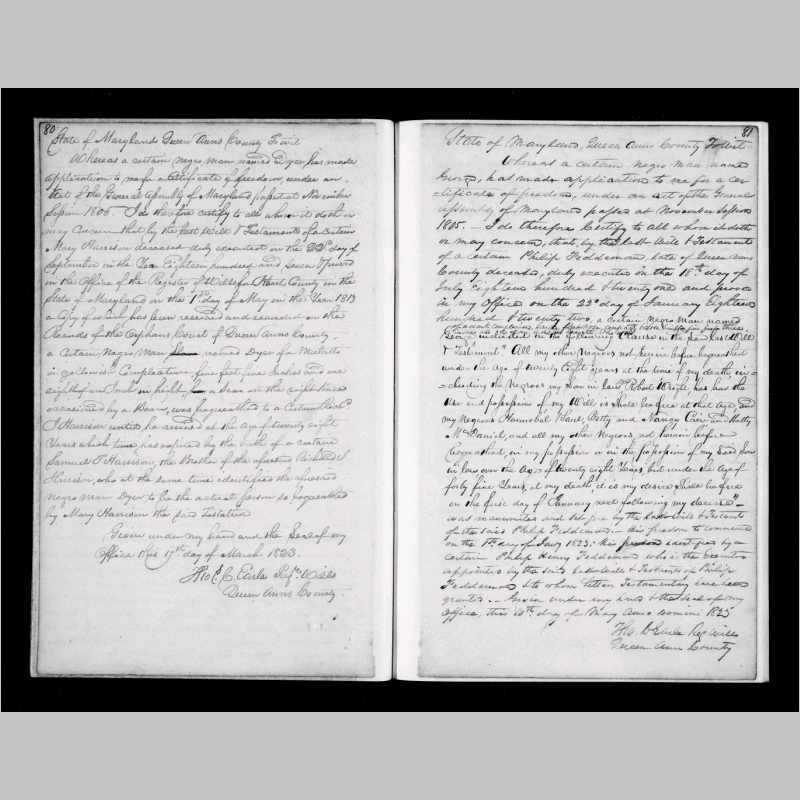 80
State of Maryland Queen Anns County To wit
Whereas a certain negro man named Dyer has made
application to me for a certificate of freedom under an
Act of the General Assembly of Maryland passed at November
Session 1805. I do therefore certify to all whom it doth or
may Concern that by the last Will & Testament of a certain
Mary Harrison deceased duly executed on the 22d day of
September in the Year Eighteen hundred and Seven & proved
in the Office of the Register of Wills for County in the
State of Maryland on the 1st day of May in the Year 1813
a Copy of which has been received and recorded in the
Records of the Orphans Court of Queen Anns County
a Certain Negro Man named Dyer of a Mulatto
or yellowish Complexion, five feet five Inches and one
eighth of an Inch in height a scar on the right
occasioned by a was bequeathed to a Certain
T Harrison until he arrived at the age of twenty eight
Years which time has expired by the oath of a certain
Samuel T Harrison, the Brother of the aforesaid
Harrison, who at the same time identifies the aforesaid
negro man Dyer to be the actual person so bequeathed
by Mary Harrison the said Testatrix
Given under my hand and the Seal of my
Office this 17th day of March 1823.
Tho. C. Earle Regr. Wills
Queen Anns County
81
State of Maryland, Queen Anns County To Wit
Whereas a certain negro man named
George, has made application to me for a cer
tificate of freedom, under an act of the General
Assembly of Maryland passed at November Session
1805. I do therefore Certify to all whom it doth
or may concern, that, by the last Will & Testament
of a certain Philip Feddeman, late of Queen Anns
County deceased, duly executed on the 18th day of
July Eighteen hundred & twenty one and proved
in my Office on the 22d day of January Eighteen
hundred & twenty two, a certain negro man named
George included in the following Clause in the said last Will
& Testament "All my other Negroes not herein before bequeathed
under the age of twenty eight years at the time of my death, in
cluding the Negroes my Son in law Robt Wright has had the
use and possession of my Will is shall be free at that age and
my Negroes Hannibal Betty and Nancy and
McDaniel, and all my other Negroes not herein before
bequeathed, in my possession or in the possession of my said Son
in law over the Age of twenty eight Years but under the Age of
forty five Years, at my death, it is my desire shall be free
on the first day of January next following my decease"
was manumitted and set free by the last Will & Testament
of the said Philip Feddeman his freedom to commence
on the 1st day of Jany 1823. this sent by a
certain Philip Henry Feddeman who is the Executor
appointed by the said last Will & Testament of Philip
Feddeman & to whom letters Testamentary have been
granted. Given under my hand & the Seal of my
Office, this 10th day of May Anno Domini 1823
Tho. C Earle Reg Wills
Queen Anns County